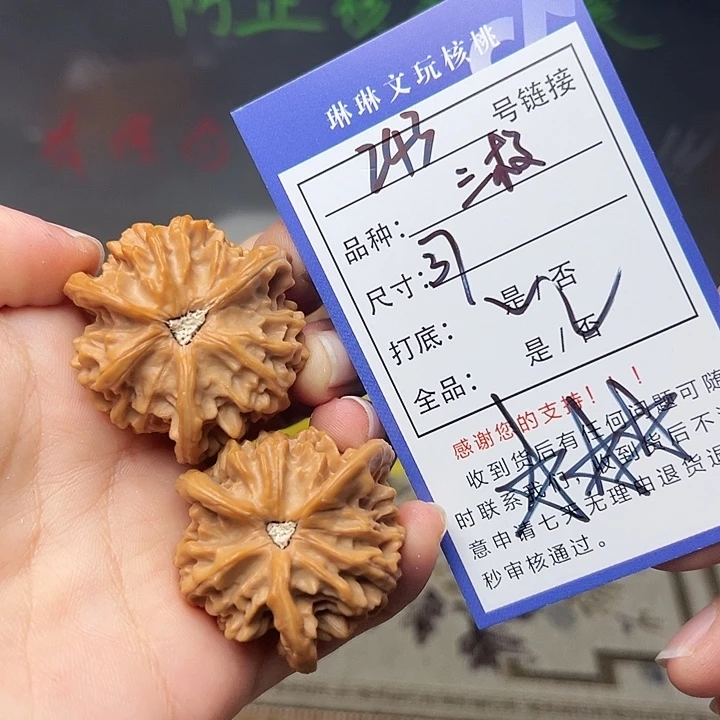 琳琳文玩核桃
243 号链接
品种: 三棱
尺寸: 37
打底: 是/否
全品: 是/否
感谢您的支持!!!
收到货后有任何问题可随
时联系我们,收到货后不
意申请七天无理由退货退
秒审核通过。